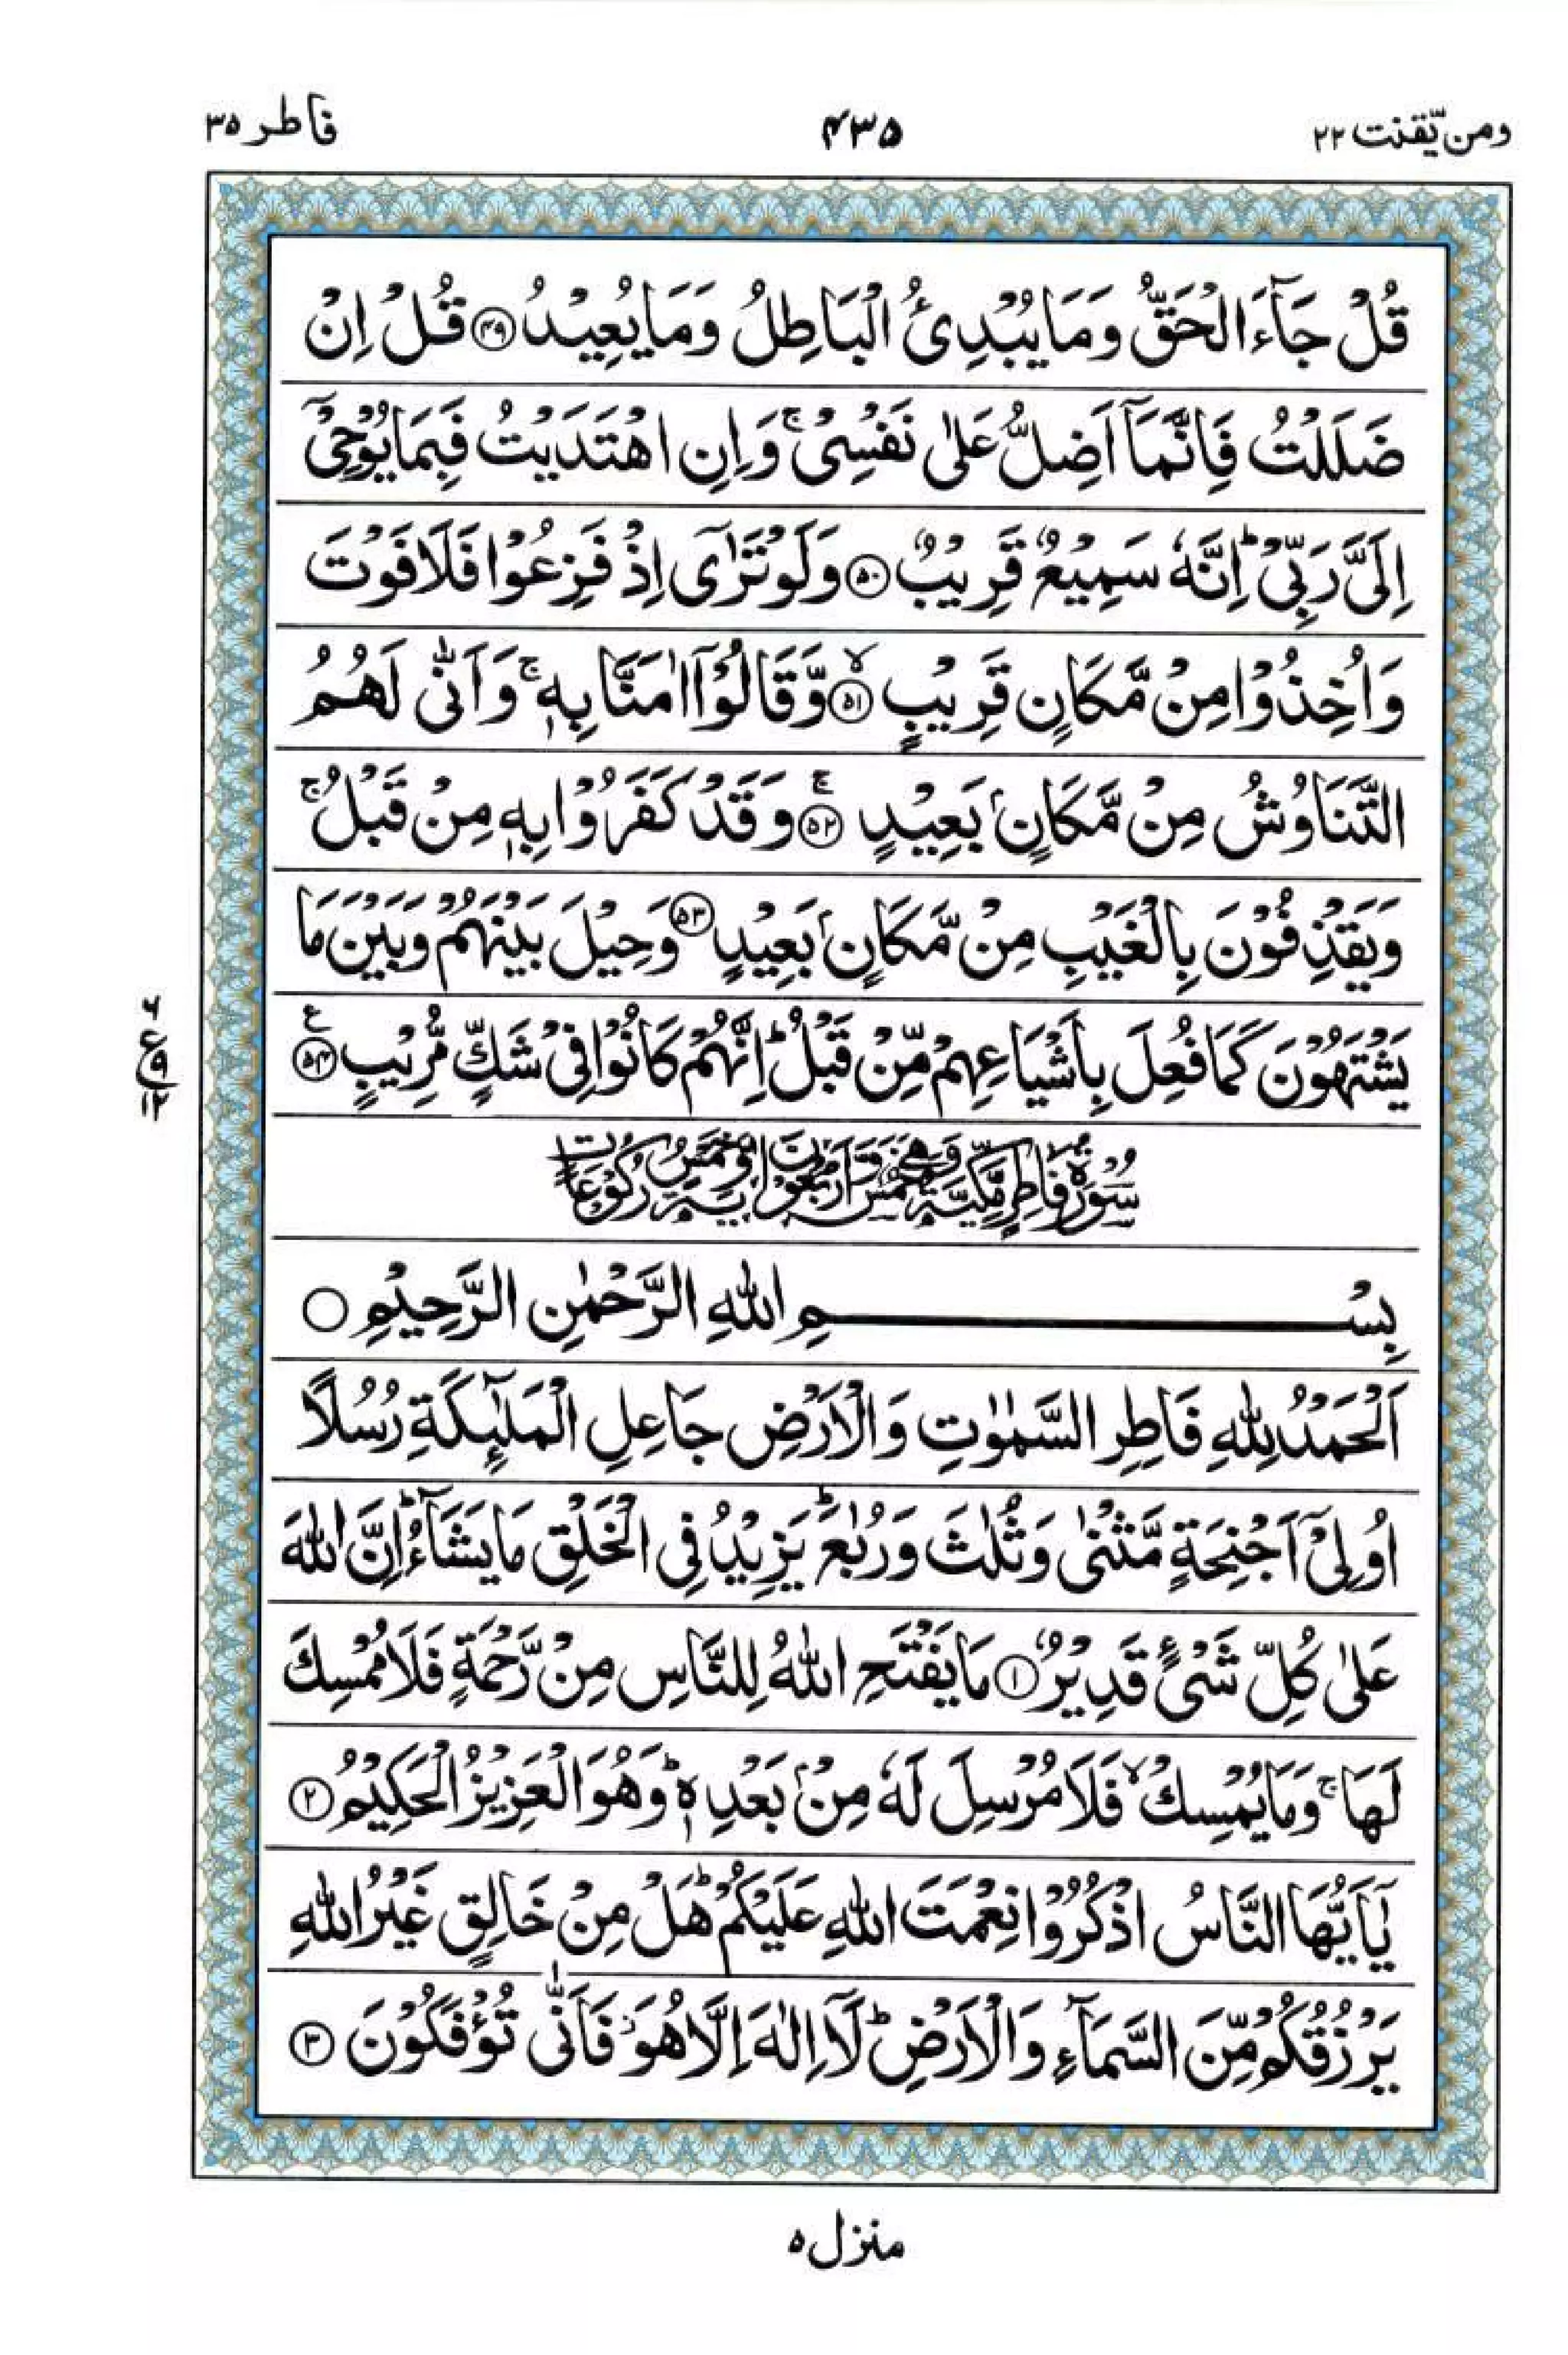 ومن یّقنت ۲۲
۴۳۵
فاطر ۳۵
قُلْ جَآءَ الْحَقُّ وَمَا یُبْدِئُ الْبَاطِلُ وَمَا یُعِیْدُ ﴿۴۹﴾ قُلْ اِنْ
ضَلَلْتُ فَاِنَّمَاۤ اَضِلُّ عَلٰی نَفْسِیْ ۚ وَاِنِ اهْتَدَیْتُ فَبِمَا یُوْحِیْۤ
اِلَیَّ رَبِّیْ ؕ اِنَّهٗ سَمِیْعٌ قَرِیْبٌ ﴿۵۰﴾ وَلَوْ تَرٰۤی اِذْ فَزِعُوْا فَلَا فَوْتَ
وَاُخِذُوْا مِنْ مَّكَانٍ قَرِیْبٍ ﴿۵۱﴾ۙ وَّقَالُوْۤا اٰمَنَّا بِهٖ ۚ وَاَنّٰی لَهُمُ
التَّنَاوُشُ مِنْ مَّكَانٍۭ بَعِیْدٍ ﴿۵۲﴾ۚ وَقَدْ كَفَرُوْا بِهٖ مِنْ قَبْلُ ۚ
وَیَقْذِفُوْنَ بِالْغَیْبِ مِنْ مَّكَانٍۭ بَعِیْدٍ ﴿۵۳﴾ وَحِیْلَ بَیْنَهُمْ وَبَیْنَ مَا
یَشْتَهُوْنَ كَمَا فُعِلَ بِاَشْیَاعِهِمْ مِّنْ قَبْلُ ؕ اِنَّهُمْ كَانُوْا فِیْ شَكٍّ مُّرِیْبٍ ﴿۵۴﴾ ع
۶ ع ۹ ۱۲
سُوْرَةُ فَاطِرٍ مَّكِّیَّةٌ وَّهِیَ خَمْسٌ وَّاَرْبَعُوْنَ اٰیَةً وَّخَمْسُ رُكُوْعَاتٍ
بِسْمِ اللّٰهِ الرَّحْمٰنِ الرَّحِیْمِ ○
اَلْحَمْدُ لِلّٰهِ فَاطِرِ السَّمٰوٰتِ وَالْاَرْضِ جَاعِلِ الْمَلٰٓئِكَةِ رُسُلًا
اُولِیْۤ اَجْنِحَةٍ مَّثْنٰی وَثُلٰثَ وَرُبٰعَ ؕ یَزِیْدُ فِی الْخَلْقِ مَا یَشَآءُ ؕ اِنَّ اللّٰهَ
عَلٰی كُلِّ شَیْءٍ قَدِیْرٌ ﴿۱﴾ مَا یَفْتَحِ اللّٰهُ لِلنَّاسِ مِنْ رَّحْمَةٍ فَلَا مُمْسِكَ
لَهَا ۚ وَمَا یُمْسِكْ ۙ فَلَا مُرْسِلَ لَهٗ مِنْۢ بَعْدِهٖ ؕ وَهُوَ الْعَزِیْزُ الْحَكِیْمُ ﴿۲﴾
یٰۤاَیُّهَا النَّاسُ اذْكُرُوْا نِعْمَتَ اللّٰهِ عَلَیْكُمْ ؕ هَلْ مِنْ خَالِقٍ غَیْرُ اللّٰهِ
یَرْزُقُكُمْ مِّنَ السَّمَآءِ وَالْاَرْضِ ؕ لَاۤ اِلٰهَ اِلَّا هُوَ ۖ فَاَنّٰی تُؤْفَكُوْنَ ﴿۳﴾
منزل ۵